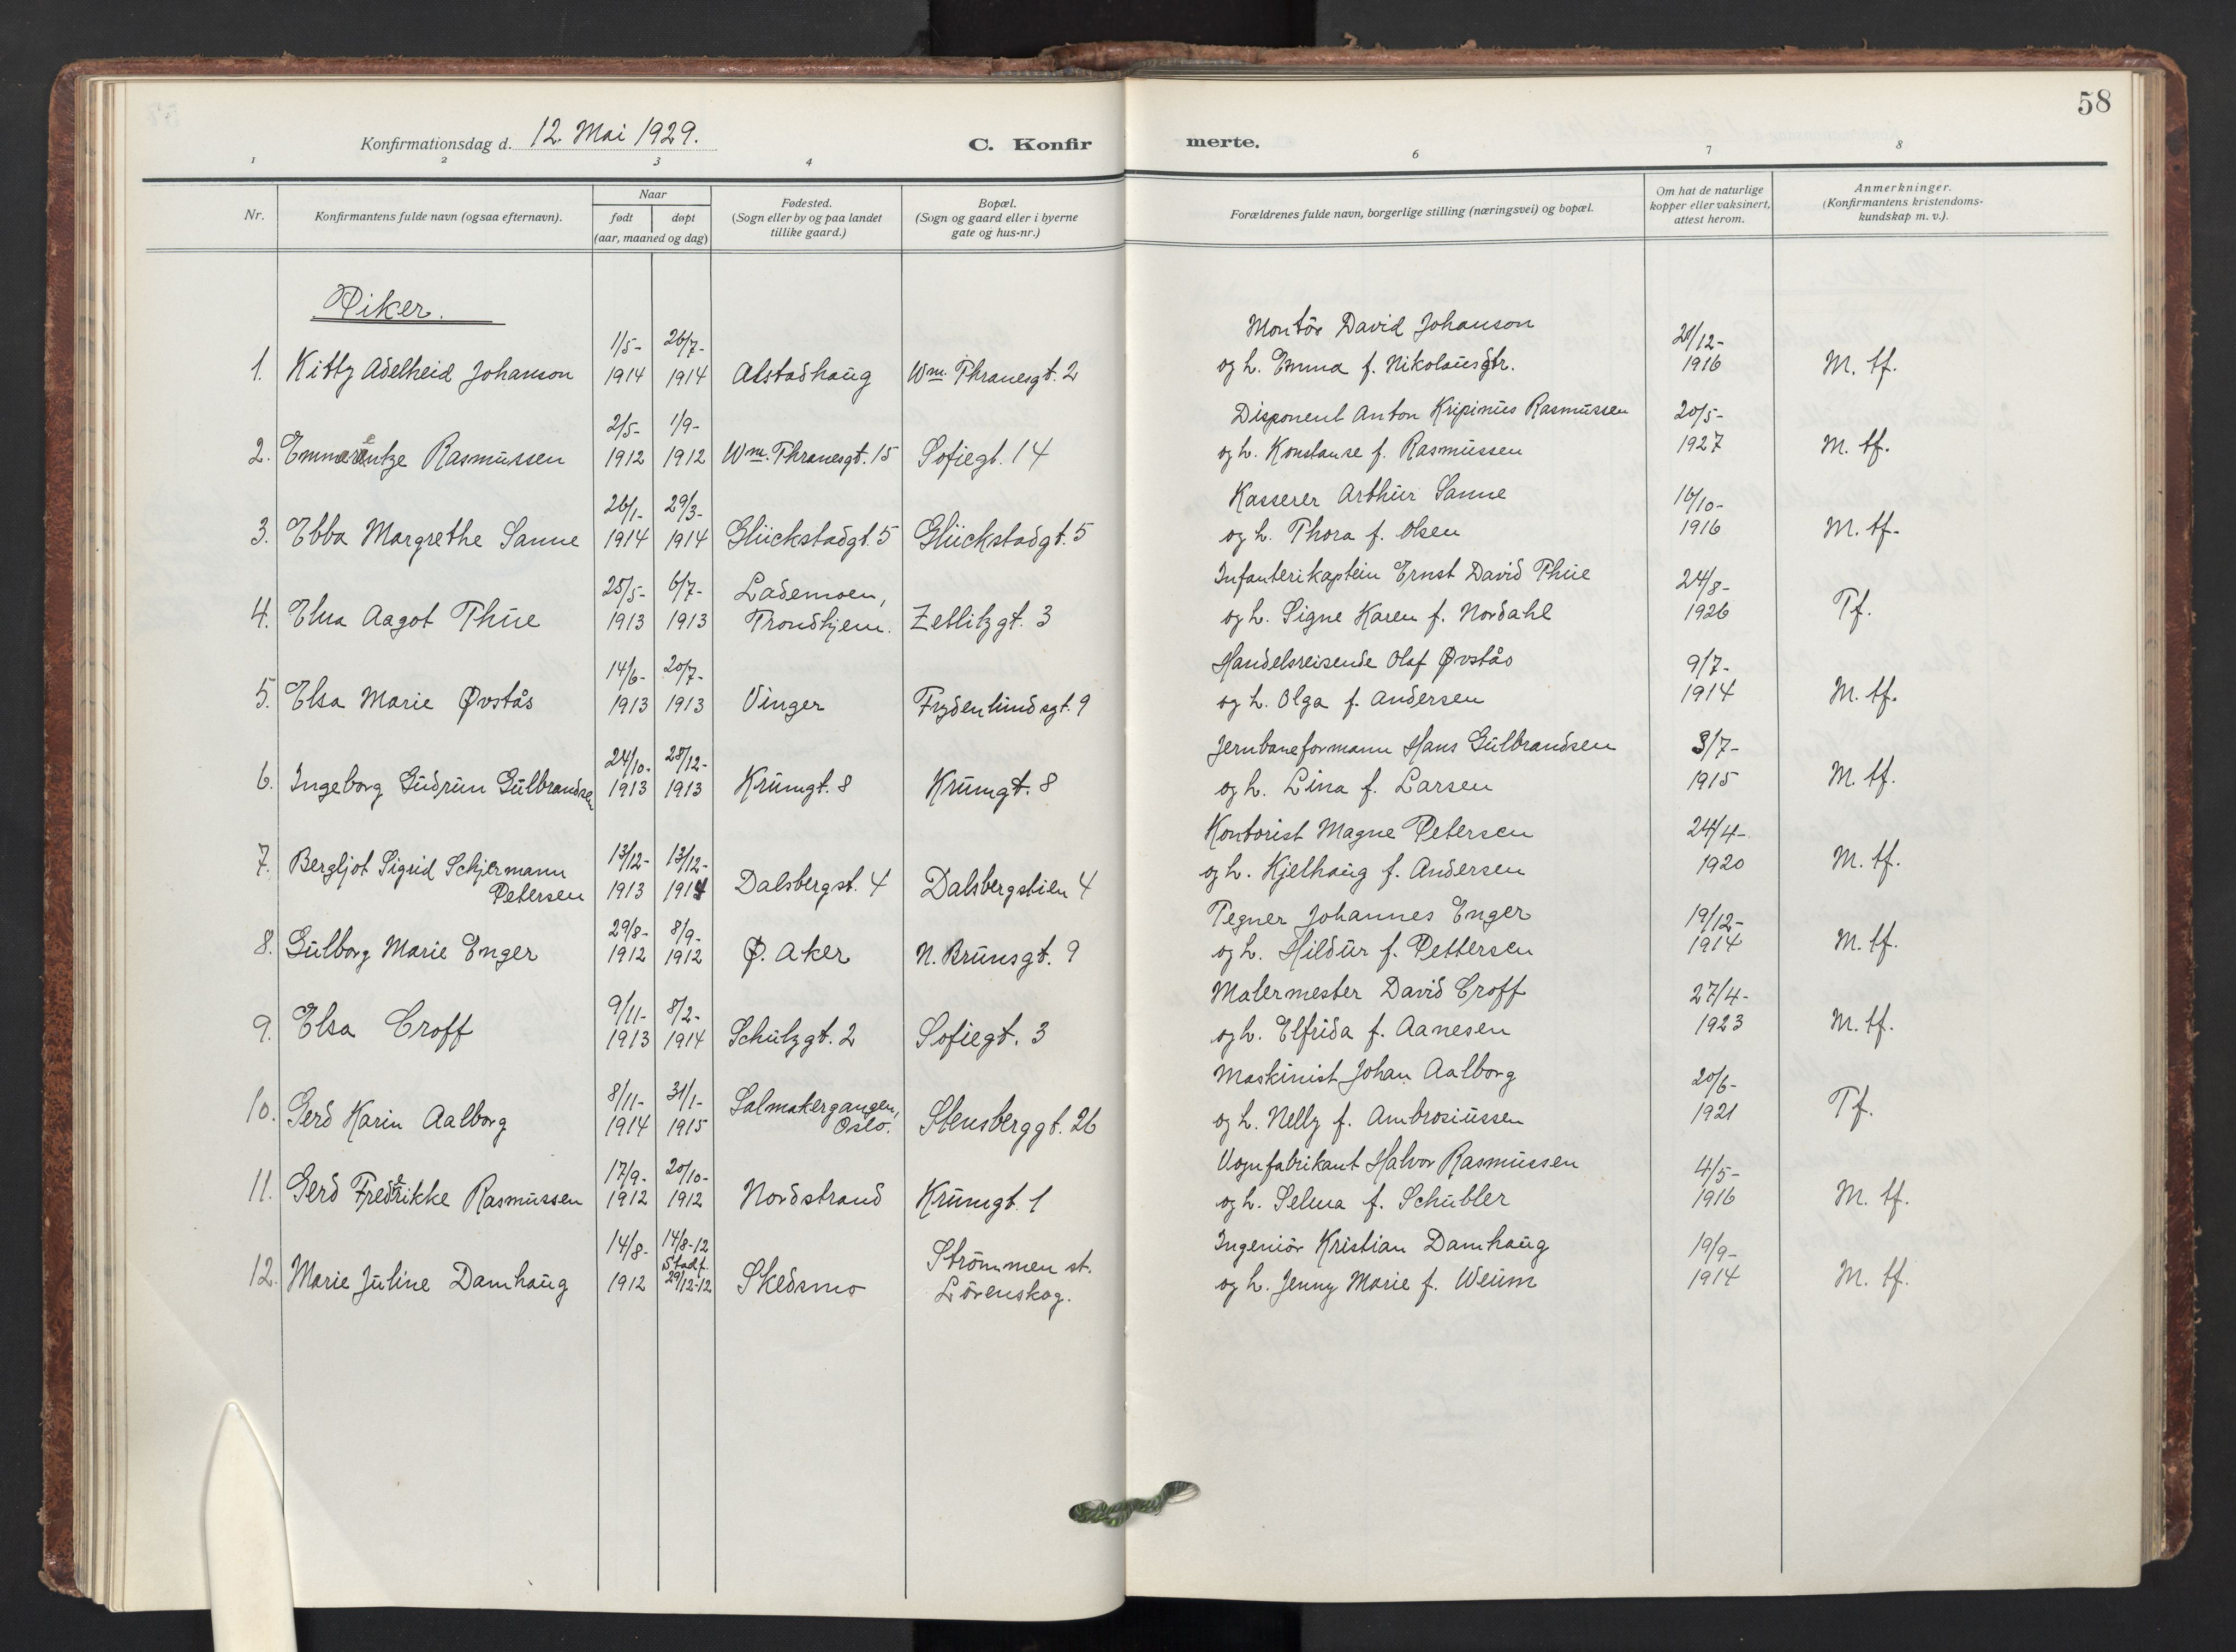 58
Konfirmationsdag d. 12. Mai 1929.
C. Konfir
merte.
1 2 3 4 6 7 8
Nr.
Konfirmantens fulde navn (ogsaa efternavn).
Naar
født døpt
(aar, maaned og dag)
Fødested.
(Sogn eller by og paa landet
tillike gaard.)
Bopæl.
(Sogn og gaard eller i byerne
gate og hus-nr.)
Forældrenes fulde navn, borgerlige stilling (næringsvei) og bopæl.
Om hat de naturlige
kopper eller vaksinert,
attest herom.
Anmerkninger.
(Konfirmantens kristendoms-
kundskap m. v.).
Piker.
1/5- 26/7- Montör David Johanson 21/12-
1. Kitty Adelheid Johanson 1914 1914 Alstadhaug Wm. Thranesgt. 2 og h. Emma f. Nikolausdtr. 1916 M. tf.
2/5- 1/9- Disponent Anton Kripinus Rasmussen 20/5-
2. Rasmussen 1912 1912 Wm. Thranesgt. 15 Sofiegt. 14 og h. Konstanse f. Rasmussen 1927 M. tf.
26/1- 29/3- Kasserer Arthur Sanne 16/10-
3. Ebba Margrethe Sanne 1914 1914 Glückstadgt. 5 Glückstadgt. 5 og h. Thora f. Olsen 1916 M. tf.
25/5- 6/7- Lademoen, Infanterikaptein Ernst David Thue 24/8-
4. Elsa Aagot Thue 1913 1913 Trondhjem. Zetlitzgt. 3 og h. Signe Karen f. Nordahl 1926 Tf.
14/6- 20/7- Handelsreisende Olaf Øvstås 9/7-
5. Elsa Marie Øvstås 1913 1913 Vinger Frydenlundsgt. 9 og h. Olga f. Andersen 1914 M. tf.
24/10- 28/12- Jernbaneformann Hans Gulbrandsen 3/7-
6. Ingeborg Gudrun Gulbrandsen 1913 1913 Krumgt. 8 Krumgt. 8 og h. Lina f. Larsen 1915 M. tf.
7. Bergljot Sigrid Schjermann 13/12- 13/12- Kontorist Magne Petersen 24/4-
Petersen 1913 1914 Dalsbergst. 4 Dalsbergstien 4 og h. Kjelhaug f. Andersen 1920 M. tf.
29/8- 8/9- Tegner Johannes Enger 19/12-
8. Gulborg Marie Enger 1912 1912 Ø. Aker N. Brunsgt. 9 og h. Hildur f. Pettersen 1914 M. tf.
9/11- 8/2- Malermester David Croff 27/4-
9. Elsa Croff 1913 1914 Schulzgt. 2 Sofiegt. 3 og h. Elfrida f. Aanesen 1923 M. tf.
8/11- 31/1- Salmakergangen, Maskinist Johan Aalborg 20/6-
10. Gerd Karin Aalborg 1914 1915 Oslo. Stensberggt. 26 og h. Nelly f. Ambrosiussen 1921 Tf.
17/9- 20/10- Vognfabrikant Halvor Rasmussen 4/5-
11. Gerd Fredrikke Rasmussen 1912 1912 Nordstrand Krumgt. 1 og h. Selma f. Schübler 1916 M. tf.
14/8- 14/8-12 Strömmen st. Ingeniör Kristian Damhaug 19/9-
Stadf.
12. Marie Juline Damhaug 1912 29/12-12 Skedsmo Lörenskog. og h. Jenny Marie f. Weum 1914 M. tf.